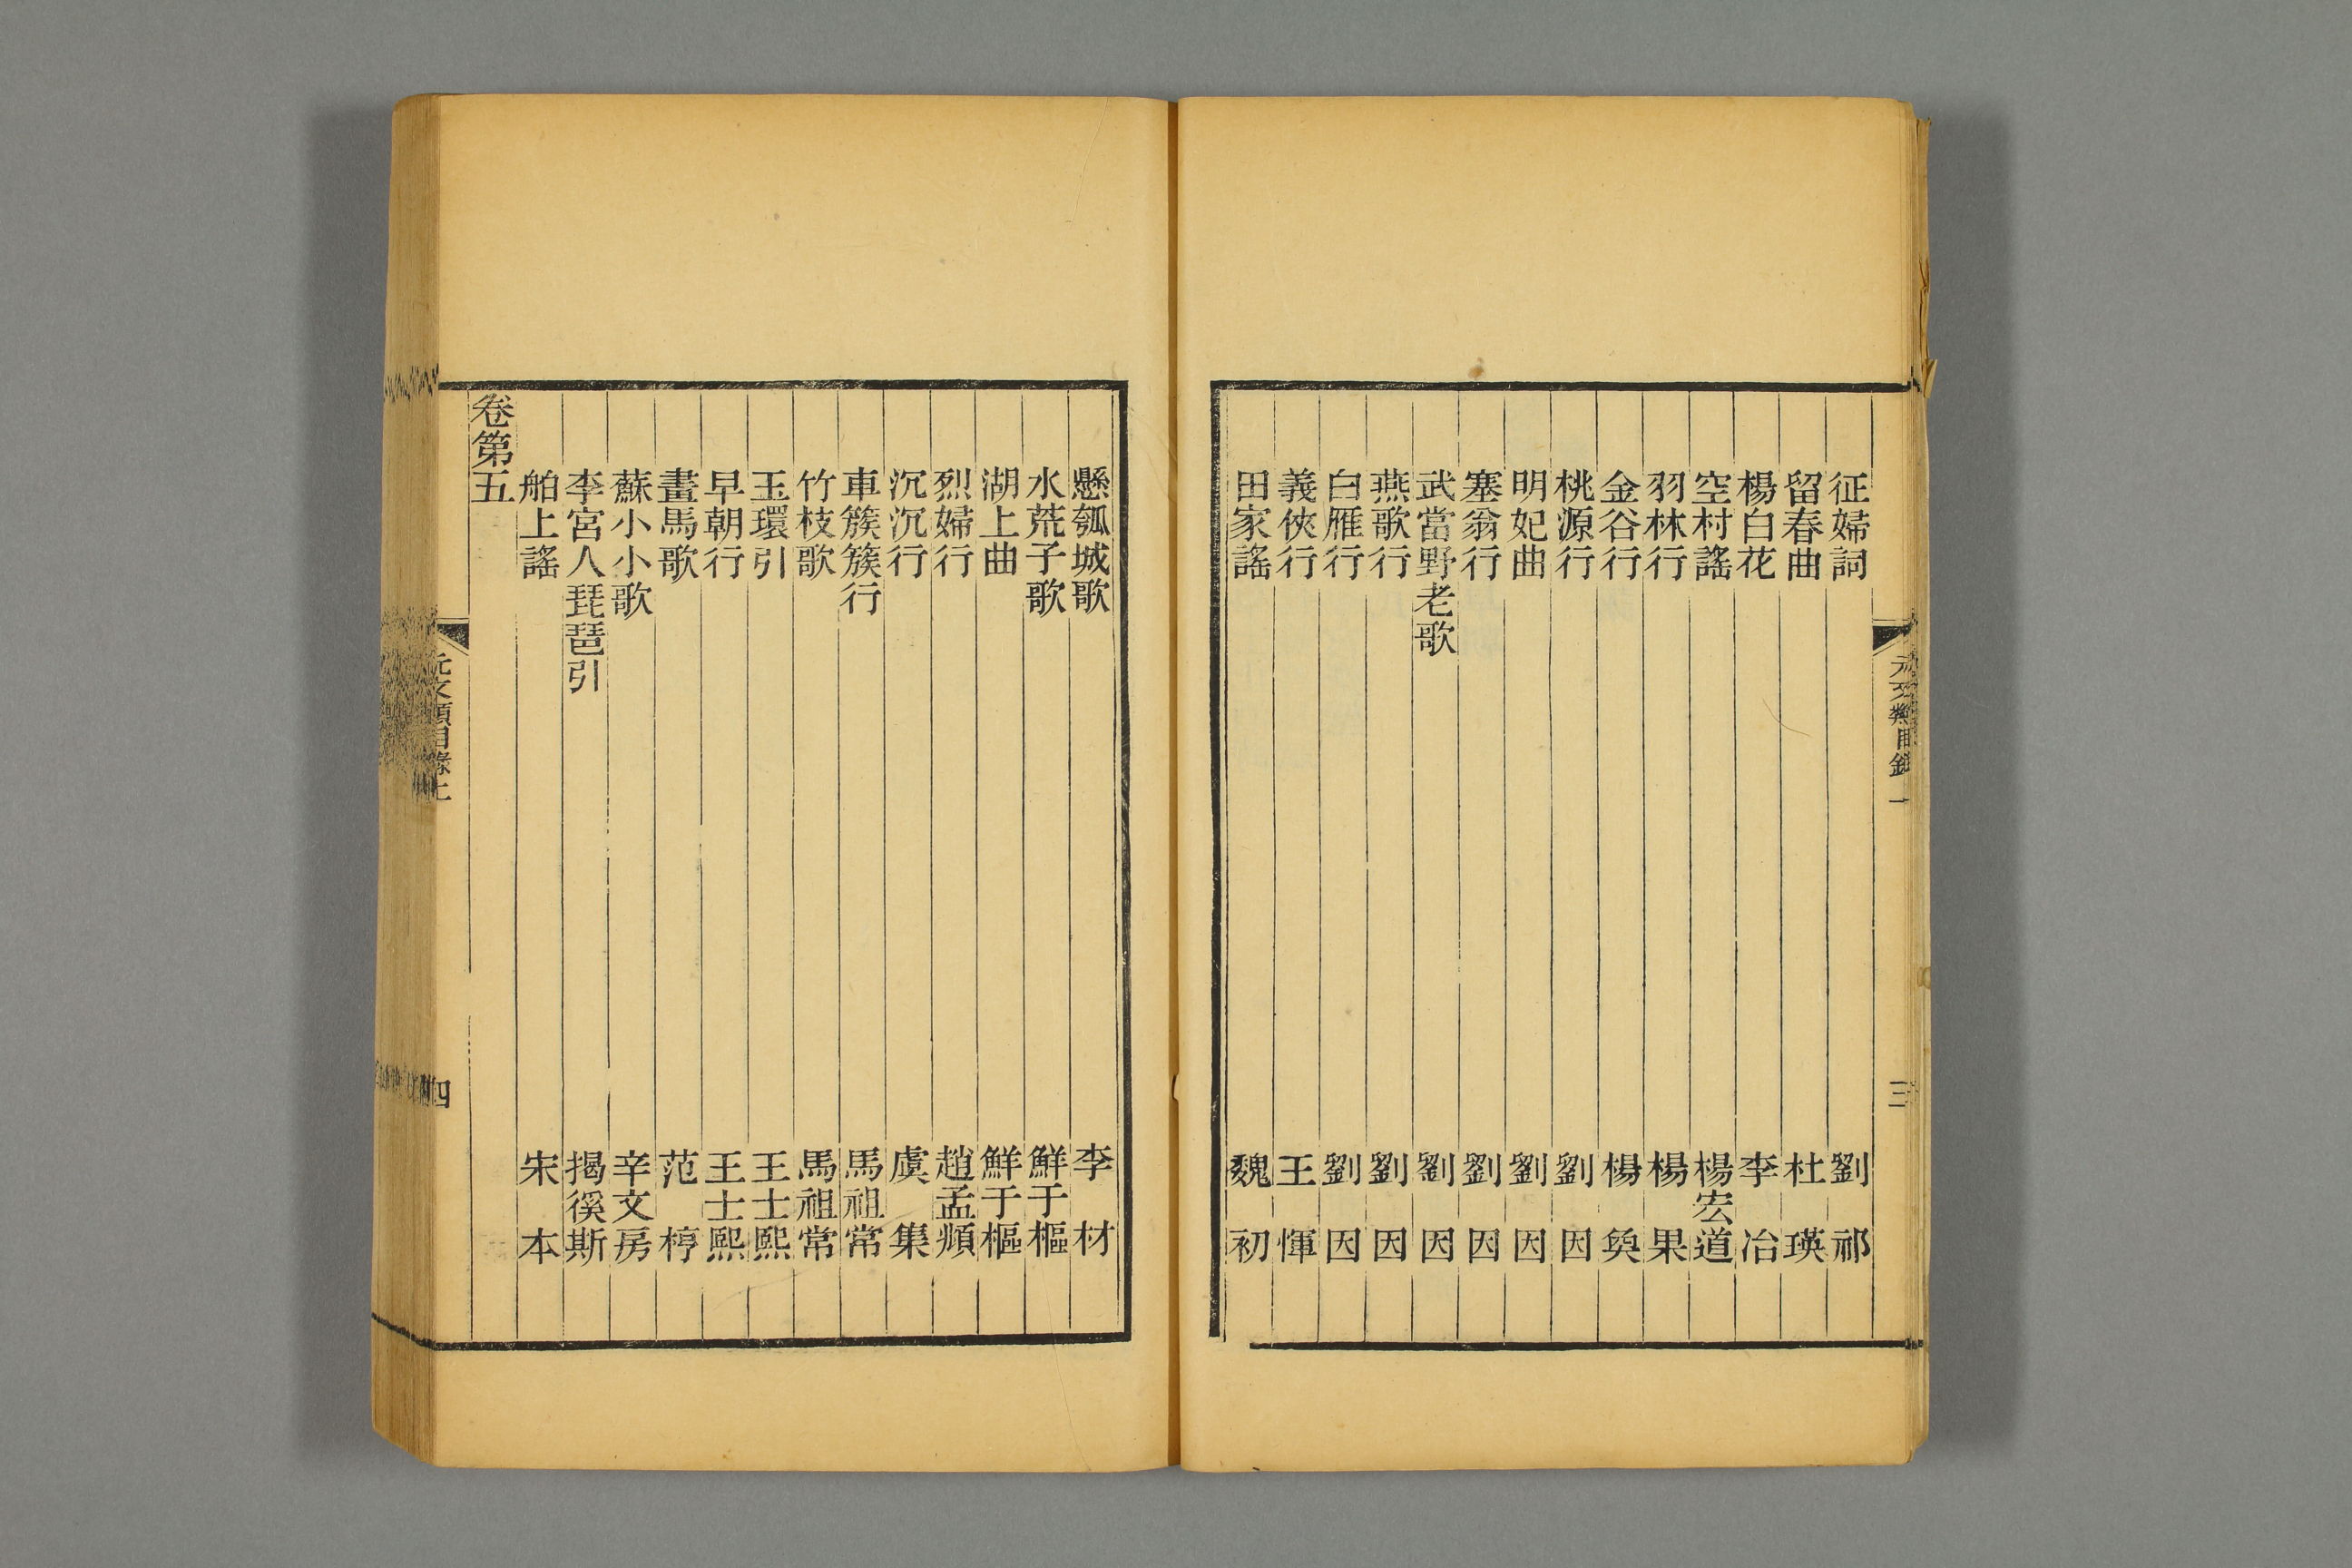 征婦詞 劉祁
留春曲 杜瑛
楊白花 李冶
空村謠 楊宏道
羽林行 楊果
金谷行 楊奐
桃源行 劉因
明妃曲 劉因
塞翁行 劉因
武當野老歌 劉因
燕歌行 劉因
白雁行 劉因
義俠行 王惲
田家謠 魏初
懸瓠城歌 李材
水荒子歌 鮮于樞
湖上曲 鮮于樞
烈婦行 趙孟頫
沉沉行 虞集
車簇簇行 馬祖常
竹枝歌 馬祖常
玉環引 王士熙
早朝行 王士熙
畫馬歌 范梈
蘇小小歌 辛文房
李宮人琵琶引 揭徯斯
舶上謠 宋本
卷第五
元文類目錄上
四